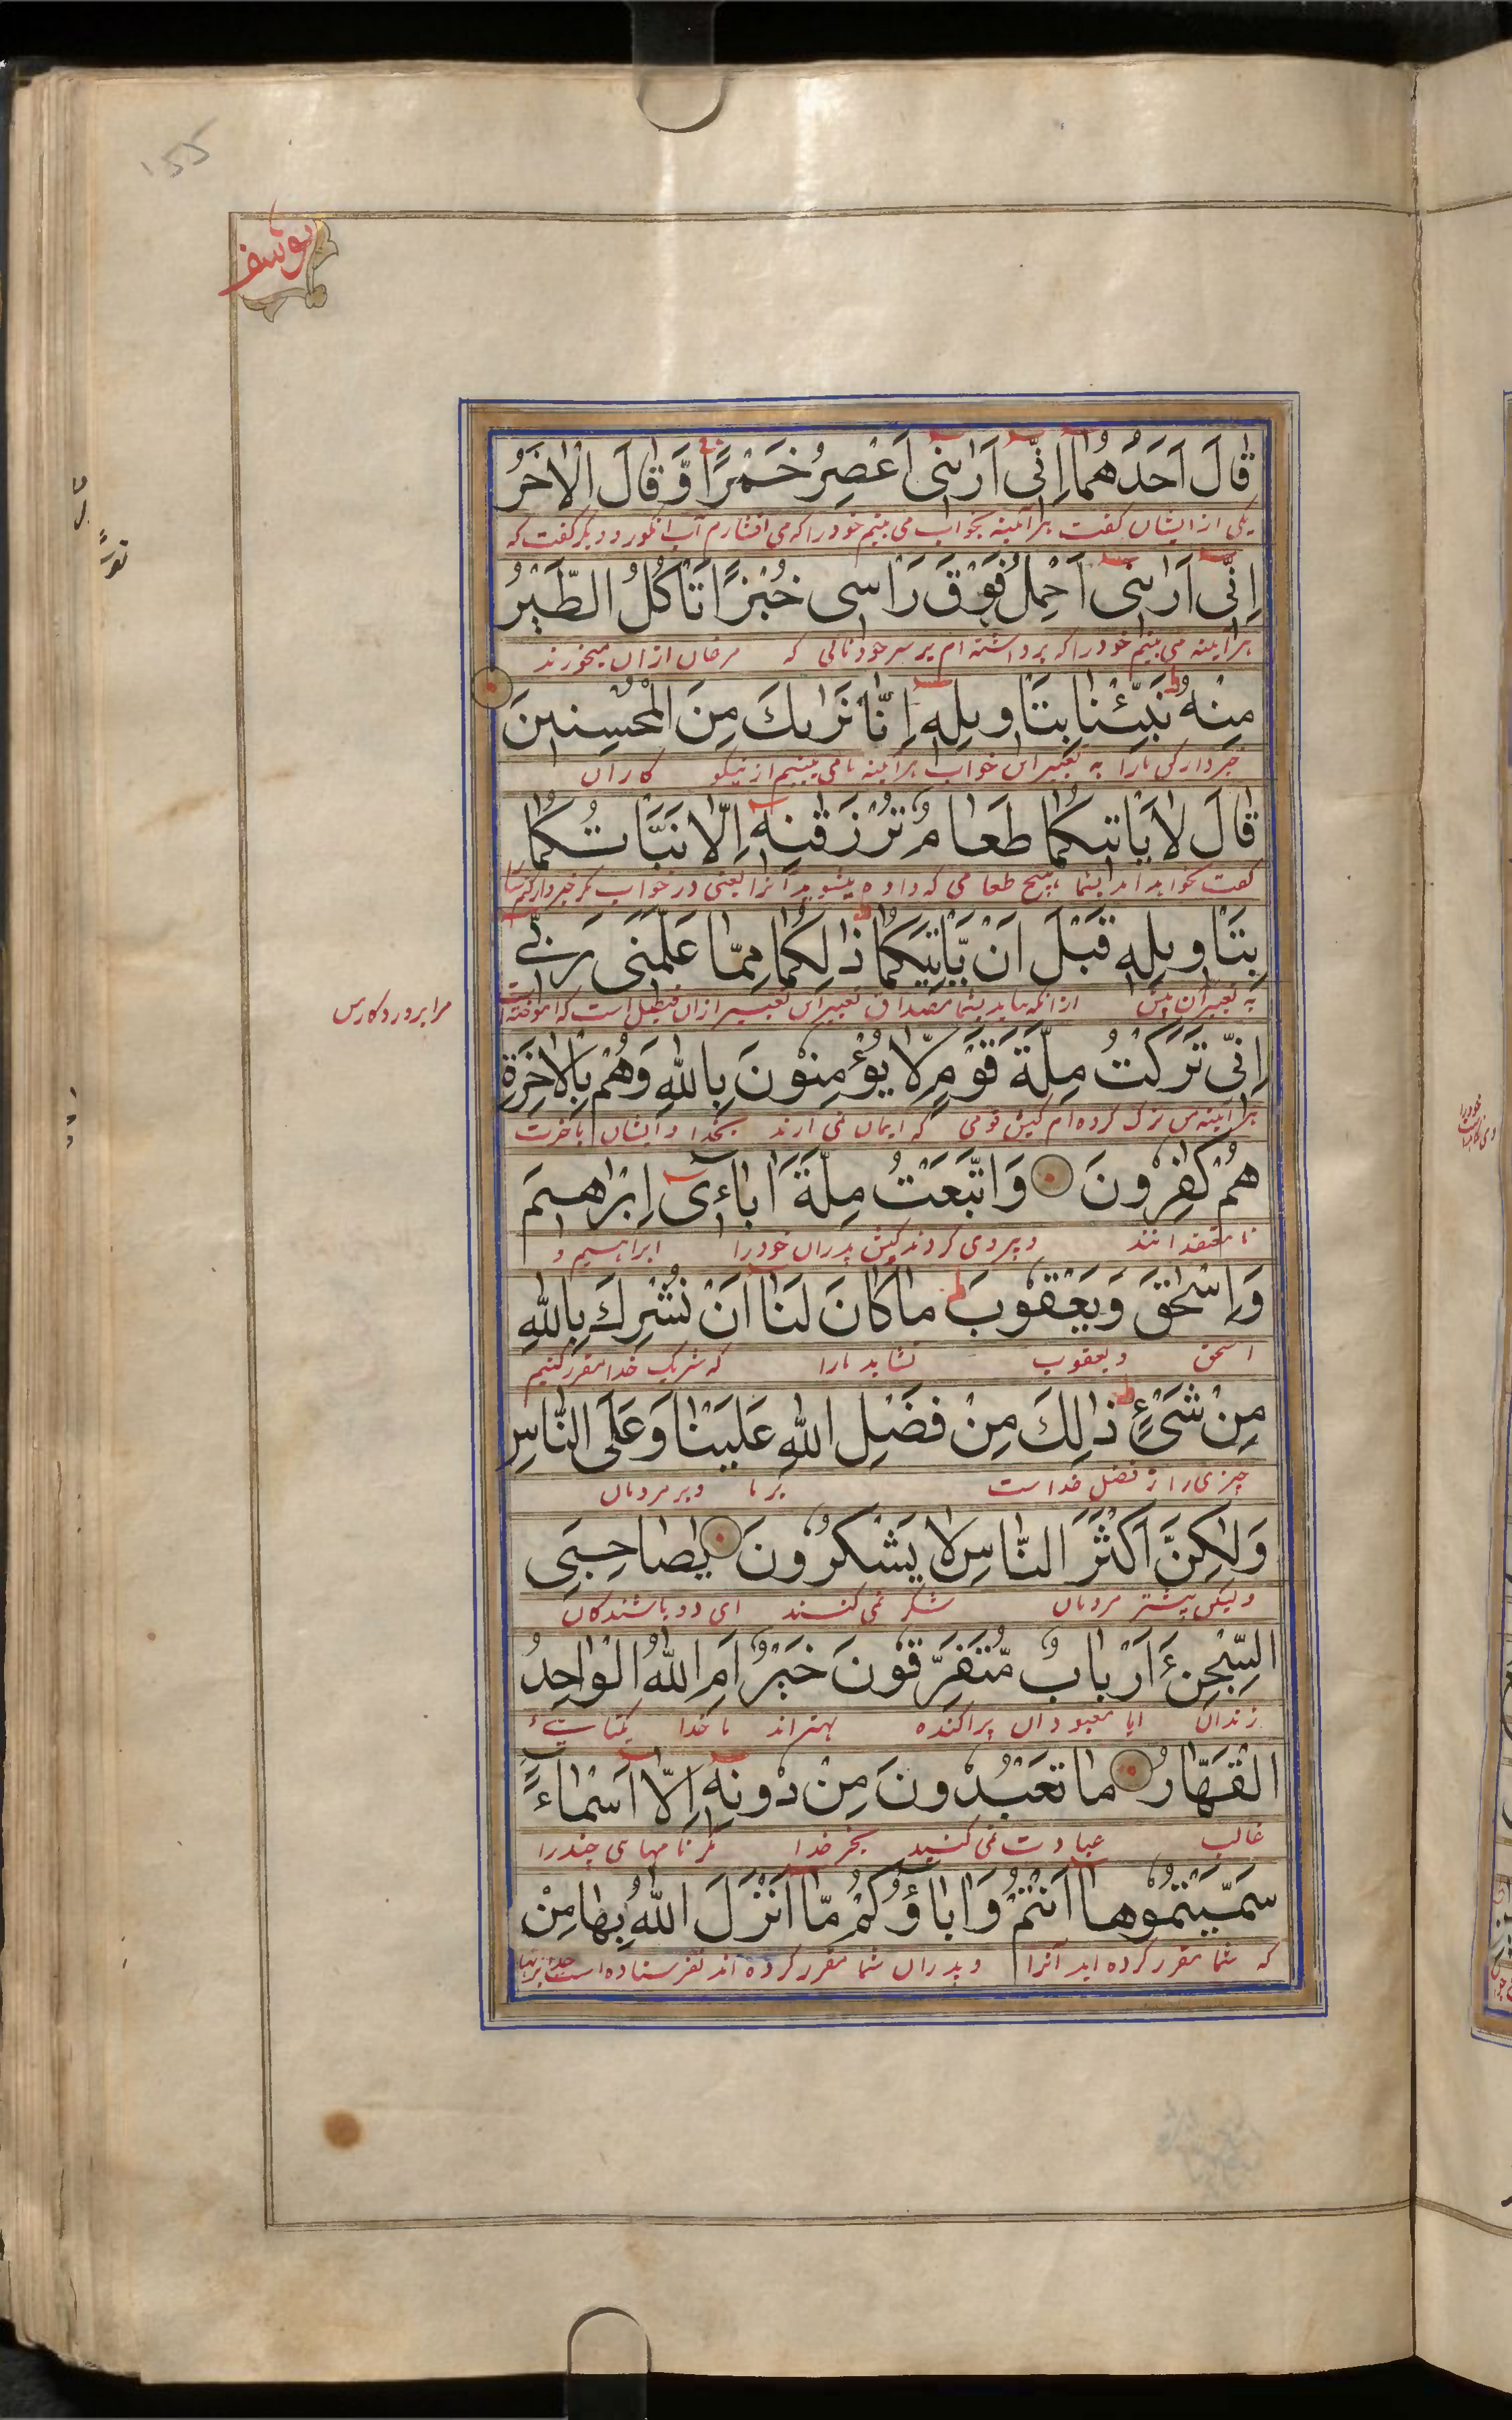 155
يوسف
قَالَ اَحَدُهُمَا اِنِّیْ اَرٰىنِیْ اَعْصِرُ خَمْرًا وَّقَالَ الْاٰخَرُ
یکی از ایشان گفت هرآئینه بخواب می بینم خود را که می افشارم آب انگور و دیگر گفت که
اِنِّیْ اَرٰىنِیْ اَحْمِلُ فَوْقَ رَاْسِیْ خُبْزًا تَاْكُلُ الطَّيْرُ
هرآئینه می بینم خود را که برداشته ام بر سر خود نانی که مرغان ازان میخورند
مِنْهُ نَبِّئْنَا بِتَاْوِيْلِهٖ اِنَّا نَرٰىكَ مِنَ الْمُحْسِنِيْنَ
خبردار کن ما را به تعبیر این خواب هرآئینه ما می بینیم از نیکو کاران
قَالَ لَا يَاْتِيْكُمَا طَعَامٌ تُرْزَقٰنِهٖ اِلَّا نَبَّاْتُكُمَا
گفت نخواهد آمد بشما هیچ طعامی که داده میشوید آنرا یعنی در خواب مگر خبردار کنم شما
بِتَاْوِيْلِهٖ قَبْلَ اَنْ يَّاْتِيَكُمَا ذٰلِكُمَا مِمَّا عَلَّمَنِیْ رَبِّیْ
به تعبیر آن پیش ازانکه بیاید بشما مصداق تعبیر این تعبیر ازان قبیل است که آموخته است
مرا پروردگار من
اِنِّیْ تَرَكْتُ مِلَّةَ قَوْمٍ لَّا يُؤْمِنُوْنَ بِاللّٰهِ وَهُمْ بِالْاٰخِرَةِ
هرآئینه من ترک کرده ام کیش قومی که ایمان نمی آرند بخدا و ایشان بآخرت
هُمْ كٰفِرُوْنَ وَاتَّبَعْتُ مِلَّةَ اٰبَآءِیْ اِبْرٰهِيْمَ
نامعتقدانند و پیروی کردند کیش پدران خود را ابراهیم و
وَاِسْحٰقَ وَيَعْقُوْبَ مَا كَانَ لَنَا اَنْ نُّشْرِكَ بِاللّٰهِ
اسحق و یعقوب نشاید ما را که شریک خدا مقرر کنیم
مِنْ شَیْءٍ ذٰلِكَ مِنْ فَضْلِ اللّٰهِ عَلَيْنَا وَعَلَى النَّاسِ
چیزی را از فضل خداست بر ما و بر مردمان
وَلٰكِنَّ اَكْثَرَ النَّاسِ لَا يَشْكُرُوْنَ يٰصَاحِبَیِ
ولیکن بیشتر مردمان شکر نمی کنند ای دو باشندگان
السِّجْنِ ءَاَرْبَابٌ مُّتَفَرِّقُوْنَ خَيْرٌ اَمِ اللّٰهُ الْوَاحِدُ
زندان ایا معبودان پراکنده بهتراند یا خدا یکتا
الْقَهَّارُ مَا تَعْبُدُوْنَ مِنْ دُوْنِهٖ اِلَّا اَسْمَآءً
غالب عبادت نمی کنید بجز خدا مگر نامهای چند را
سَمَّيْتُمُوْهَا اَنْتُمْ وَاٰبَاؤُكُمْ مَّا اَنْزَلَ اللّٰهُ بِهَا مِنْ
که شما مقرر کرده اید آنرا و پدران شما مقرر کرده اند نفرستاده است خدا